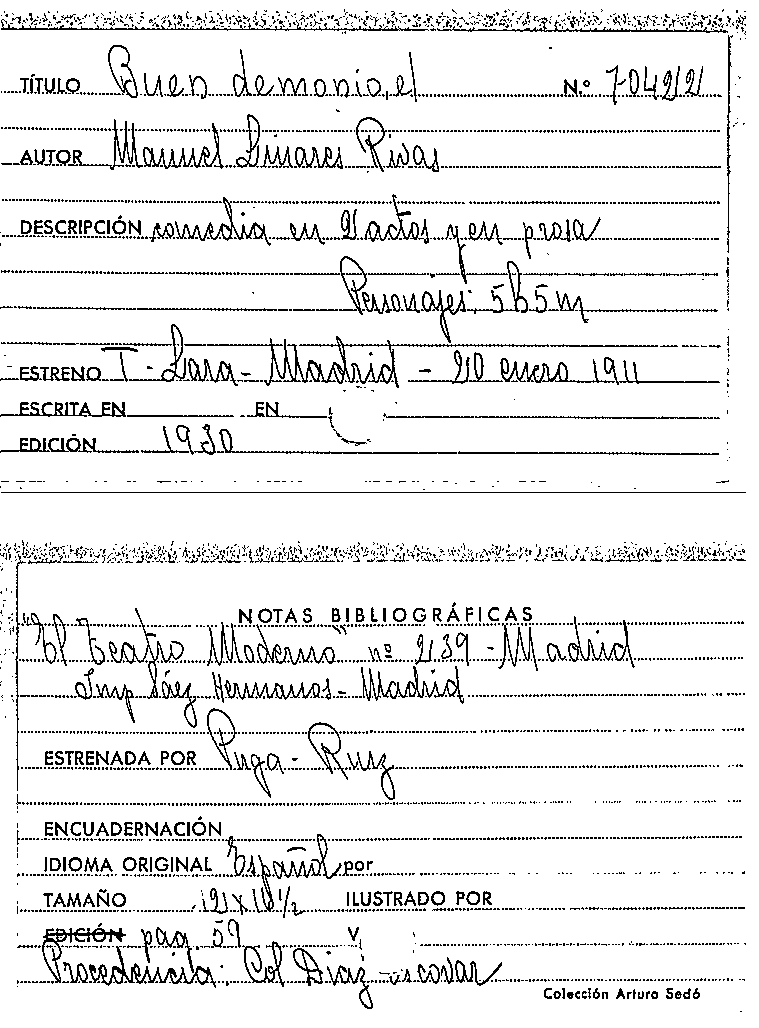 TÍTULO Buen demonio, el N.º 7-04212
AUTOR Manuel Linares Rivas
DESCRIPCIÓN comedia en 2 actos y en prosa
Personajes: 5h5m
ESTRENO T. Lara - Madrid - 20 enero 1911
ESCRITA EN EN
EDICIÓN 1930
NOTAS BIBLIOGRÁFICAS
"El Teatro Moderno" nº 239 - Madrid
Imp Sáez Hermanos - Madrid
ESTRENADA POR Puga - Ruiz
ENCUADERNACIÓN
IDIOMA ORIGINAL Español por
TAMAÑO ILUSTRADO POR
EDICIÓN pag. 59 V
Procedencia: Col Diaz-escovar
Colección Arturo Sedó